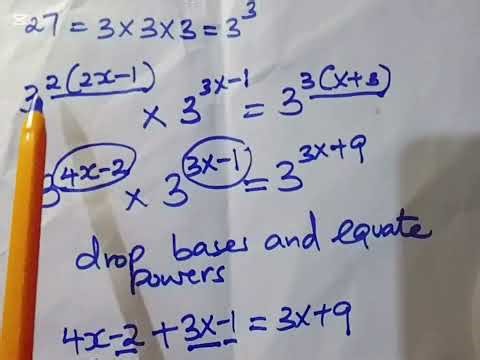 27 = 3 × 3 × 3 = 3³
3^2(2x-1) × 3^3x-1 = 3^3(x+3)
3^4x-2 × 3^3x-1 = 3^3x+9
drop bases and equate
powers
4x-2 + 3x-1 = 3x+9